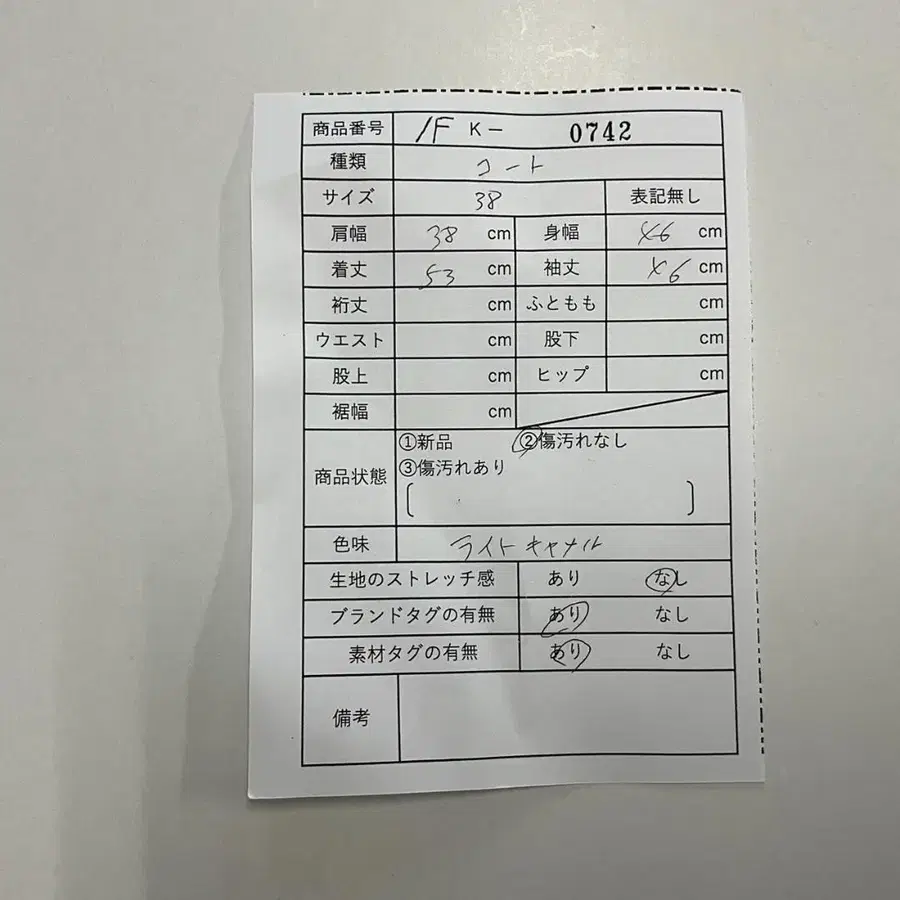 商品番号 1F K- 0742
種類 コート
サイズ 38 表記無し
肩幅 38 cm 身幅 46 cm
着丈 53 cm 袖丈 46 cm
裄丈 cm ふともも cm
ウエスト cm 股下 cm
股上 cm ヒップ cm
裾幅 cm
商品状態 ①新品 ②傷汚れなし
③傷汚れあり
[ ]
色味 ライトキャメル
生地のストレッチ感 あり なし
ブランドタグの有無 あり なし
素材タグの有無 あり なし
備考